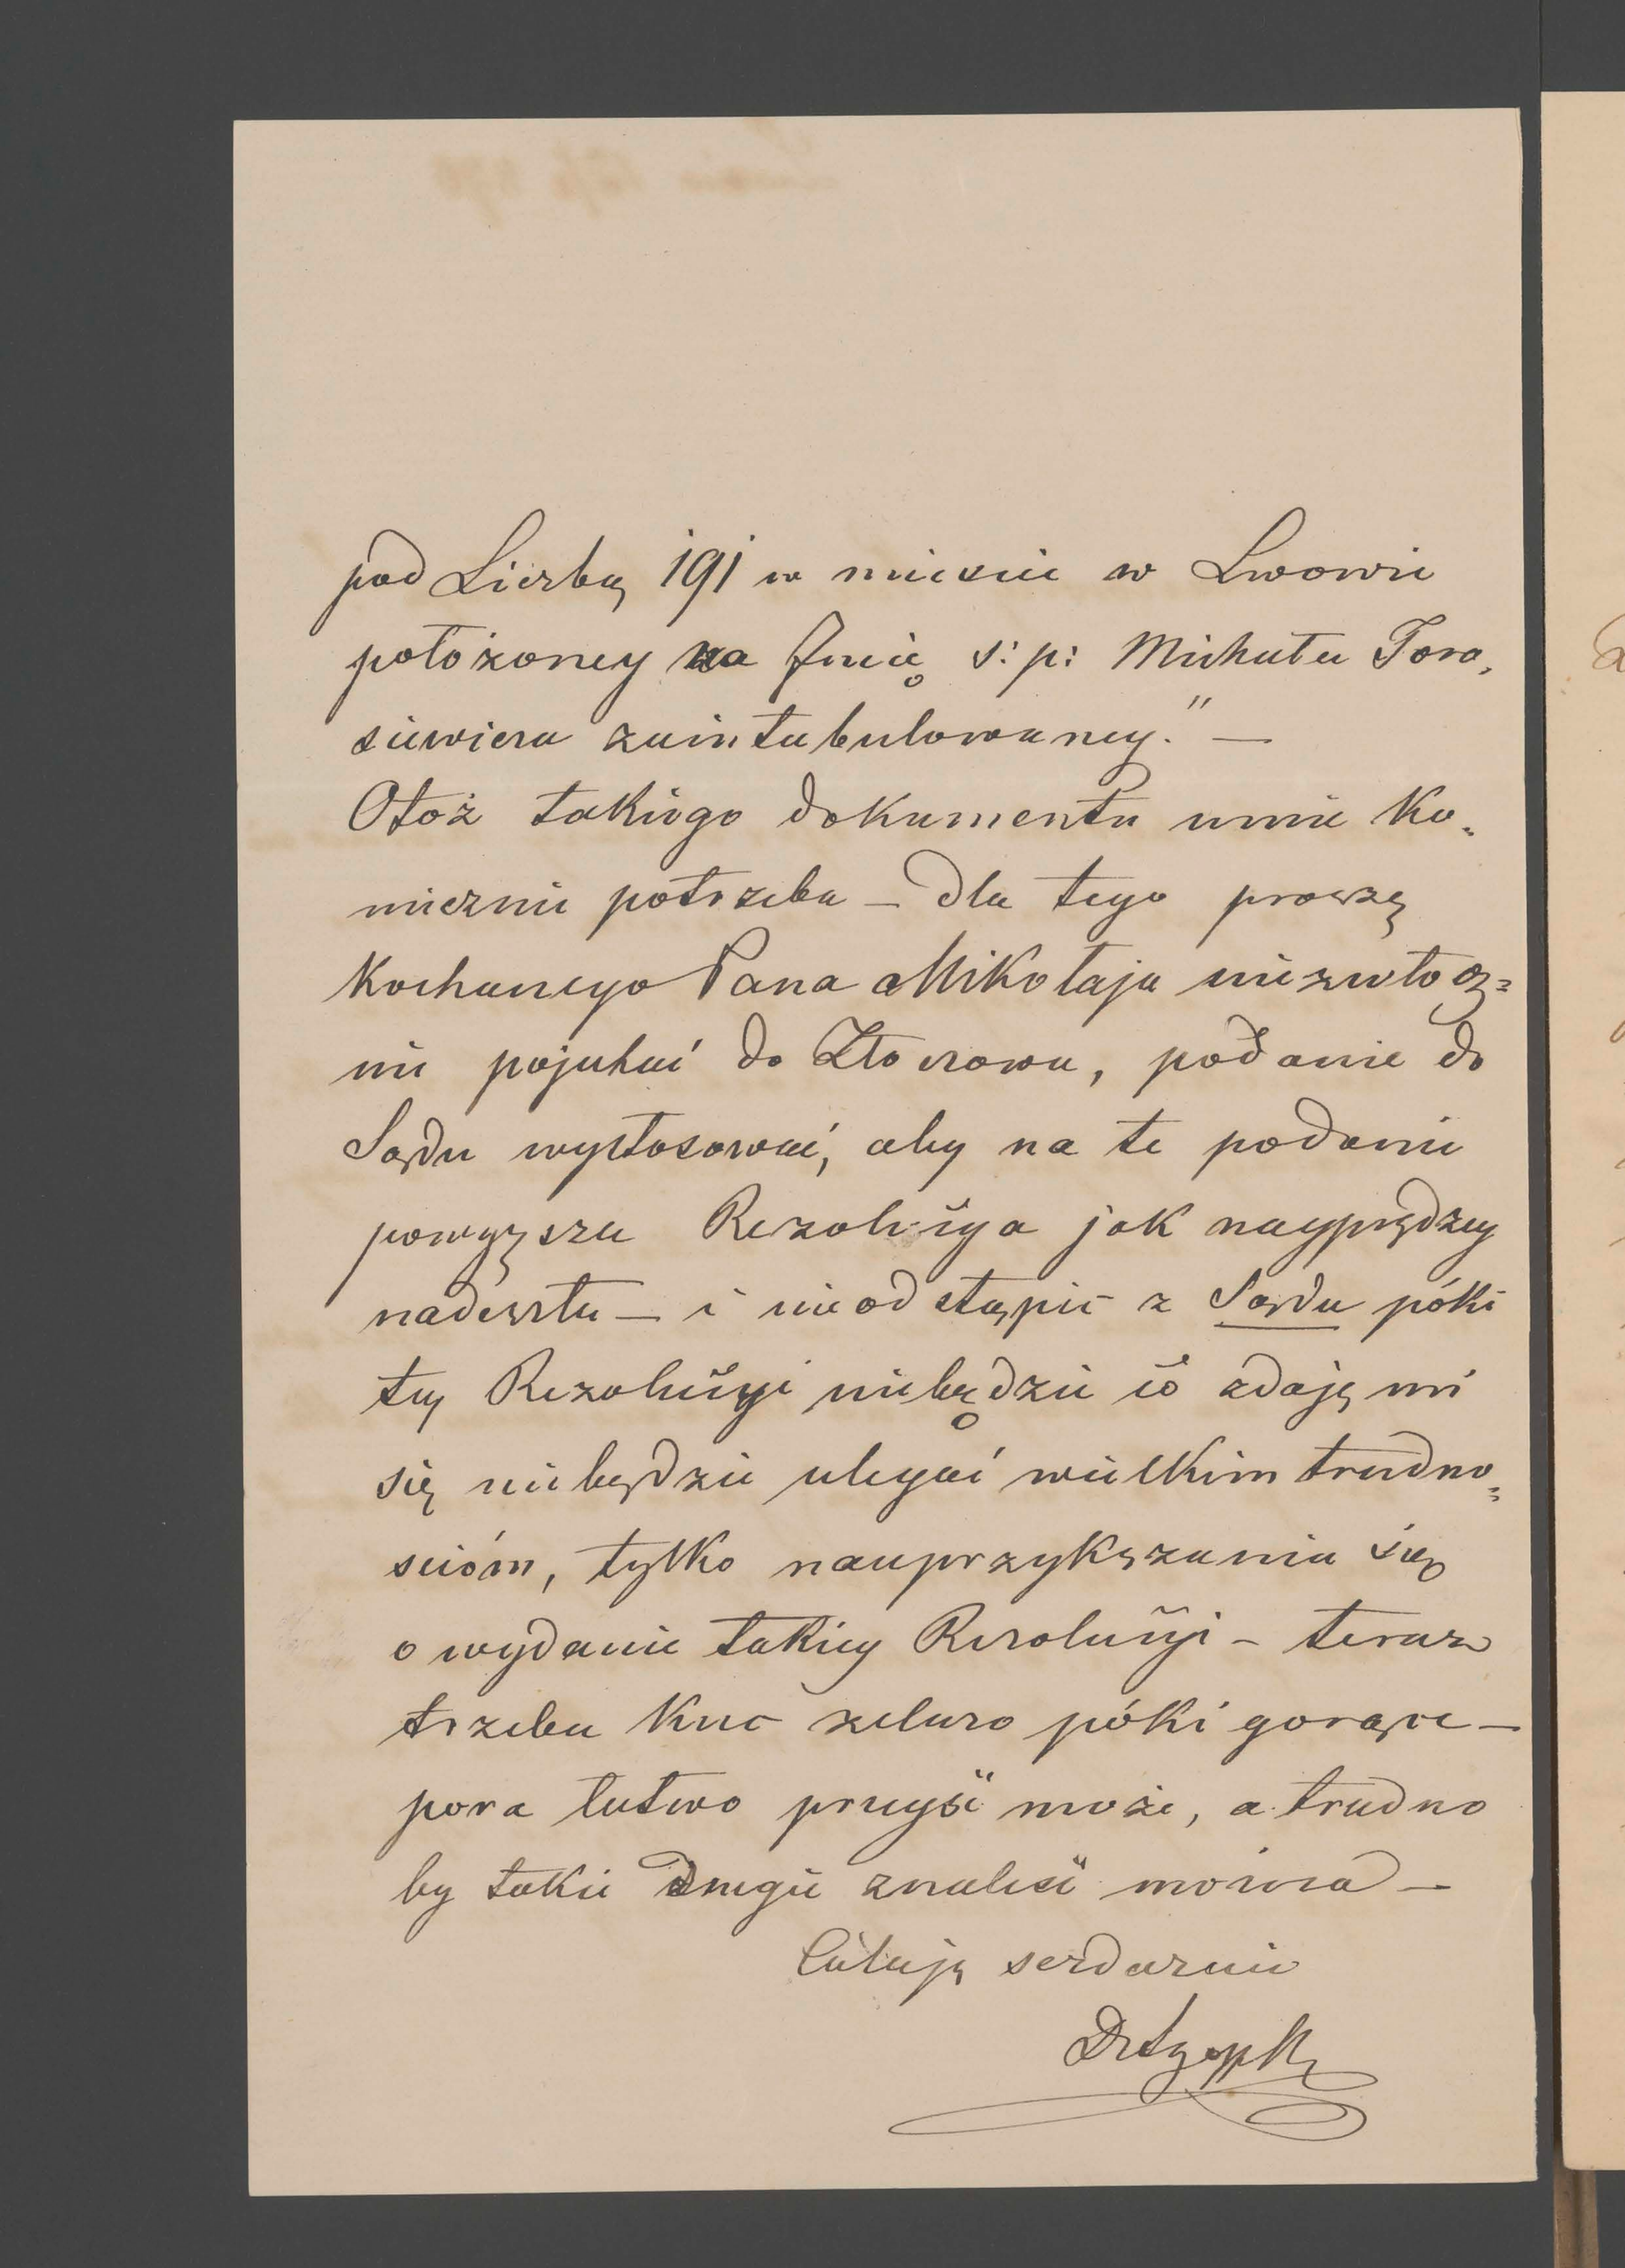 pod Liczbą 191 w mieście w Lwowie
położoney na Imię ś: p: Michała Tora,
siewicza zaintabulowaney." —
Otoż takiego dokumentu mnie ko„
niecznie potrzeba — dla tego proszę
Kochanego Pana Mikołaja niezwłocz=
nie pojechać do Złoczowa, podanie do
Sądu wystosować, aby na te podanie
powyższa Rezolucya jak nayprędzey
nadeszła — i nieodstąpić z Sądu póki
tey Rezolucyi niebędzie co zdaję mi
się niebędzie ulegać wielkim trudno„
ściom, tylko nauprzykszania się
o wydanie takiey Rezolucyi – teraz
trzeba kuc żelazo póki gorące —
pora łatwo prześć może, a trudno
by takie drugie znaleść można —
Całuję serdecznie